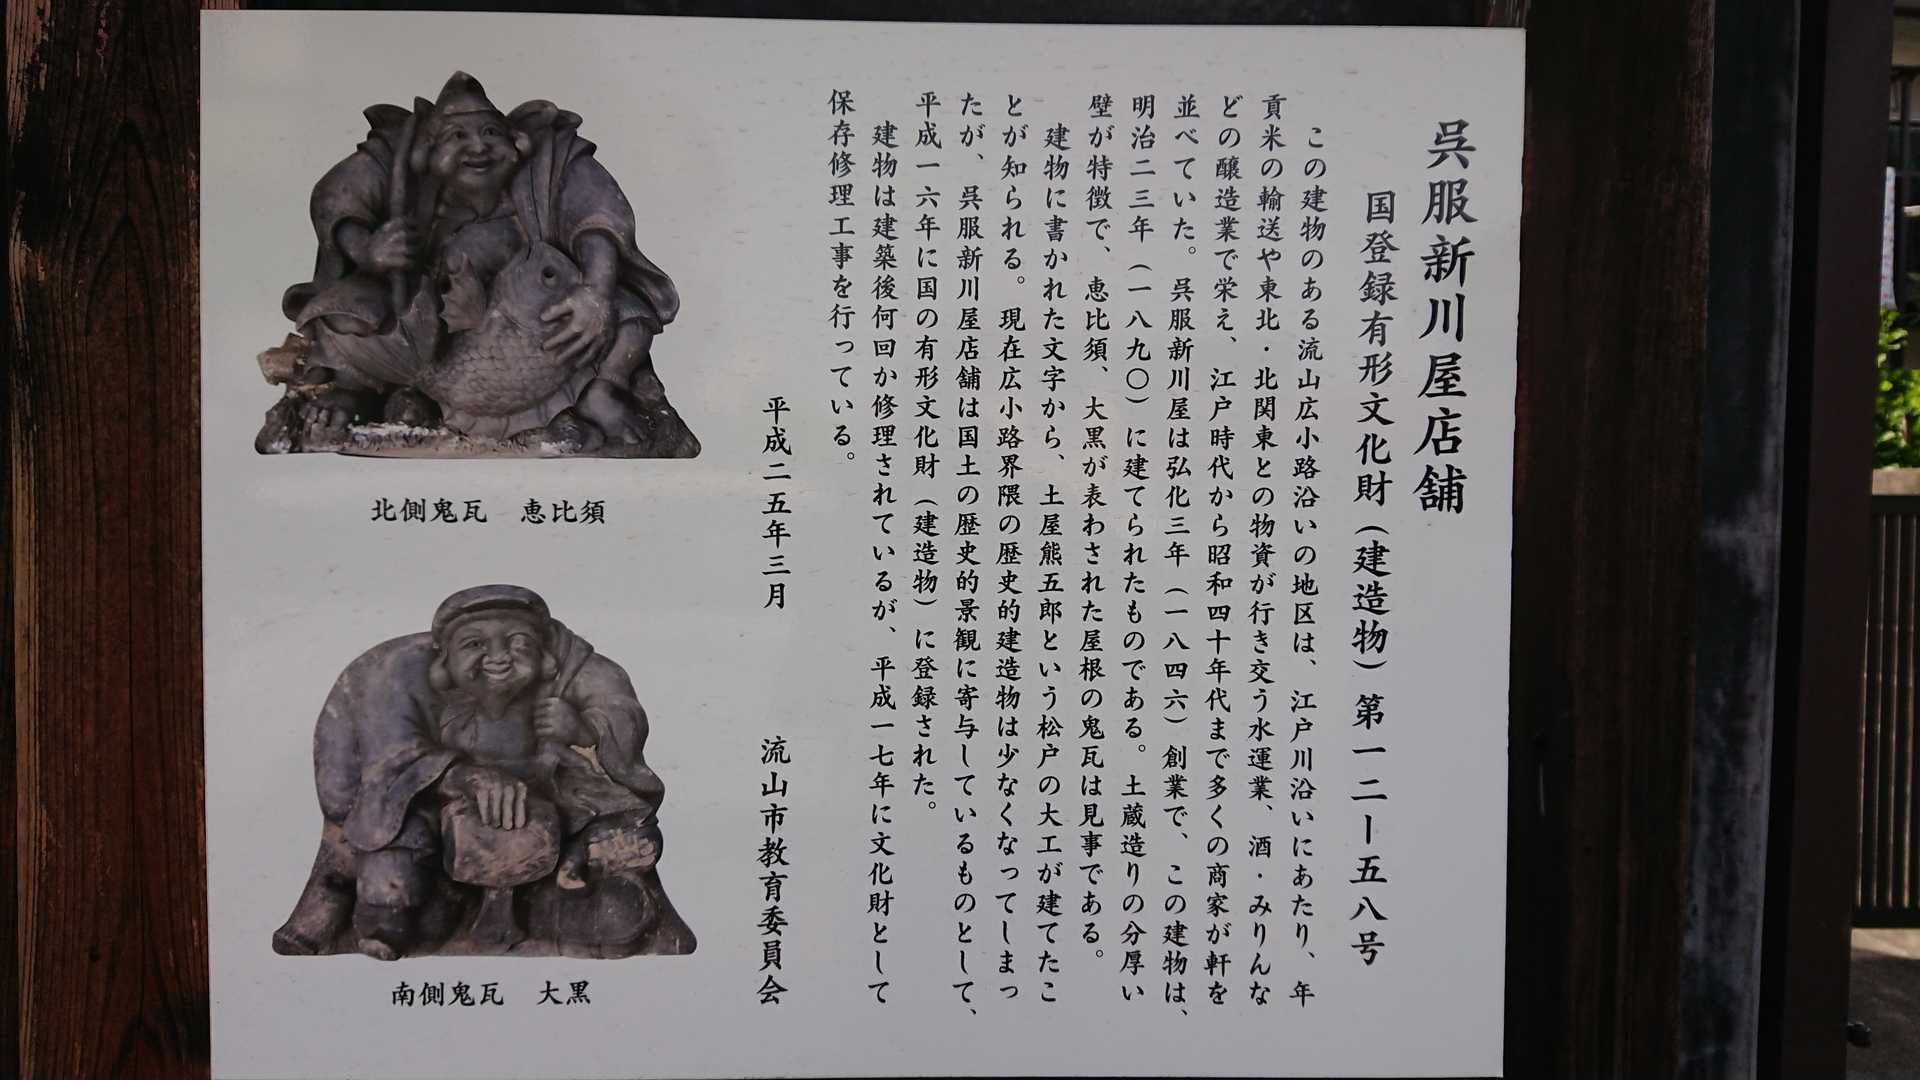 呉服新川屋店舗
国登録有形文化財（建造物）第一二ー五八号
この建物のある流山広小路沿いの地区は、江戸川沿いにあたり、年
貢米の輸送や東北・北関東との物資が行き交う水運業、酒・みりんな
どの醸造業で栄え、江戸時代から昭和四十年代まで多くの商家が軒を
並べていた。呉服新川屋は弘化三年（一八四六）創業で、この建物は、
明治二三年（一八九〇）に建てられたものである。土蔵造りの分厚い
壁が特徴で、恵比須、大黒が表わされた屋根の鬼瓦は見事である。
建物に書かれた文字から、土屋熊五郎という松戸の大工が建てたこ
とが知られる。現在広小路界隈の歴史的建造物は少なくなってしまっ
たが、呉服新川屋店舗は国土の歴史的景観に寄与しているものとして、
平成一六年に国の有形文化財（建造物）に登録された。
建物は建築後何回か修理されているが、平成一七年に文化財として
保存修理工事を行っている。
平成二五年三月　流山市教育委員会
北側鬼瓦　恵比須
南側鬼瓦　大黒